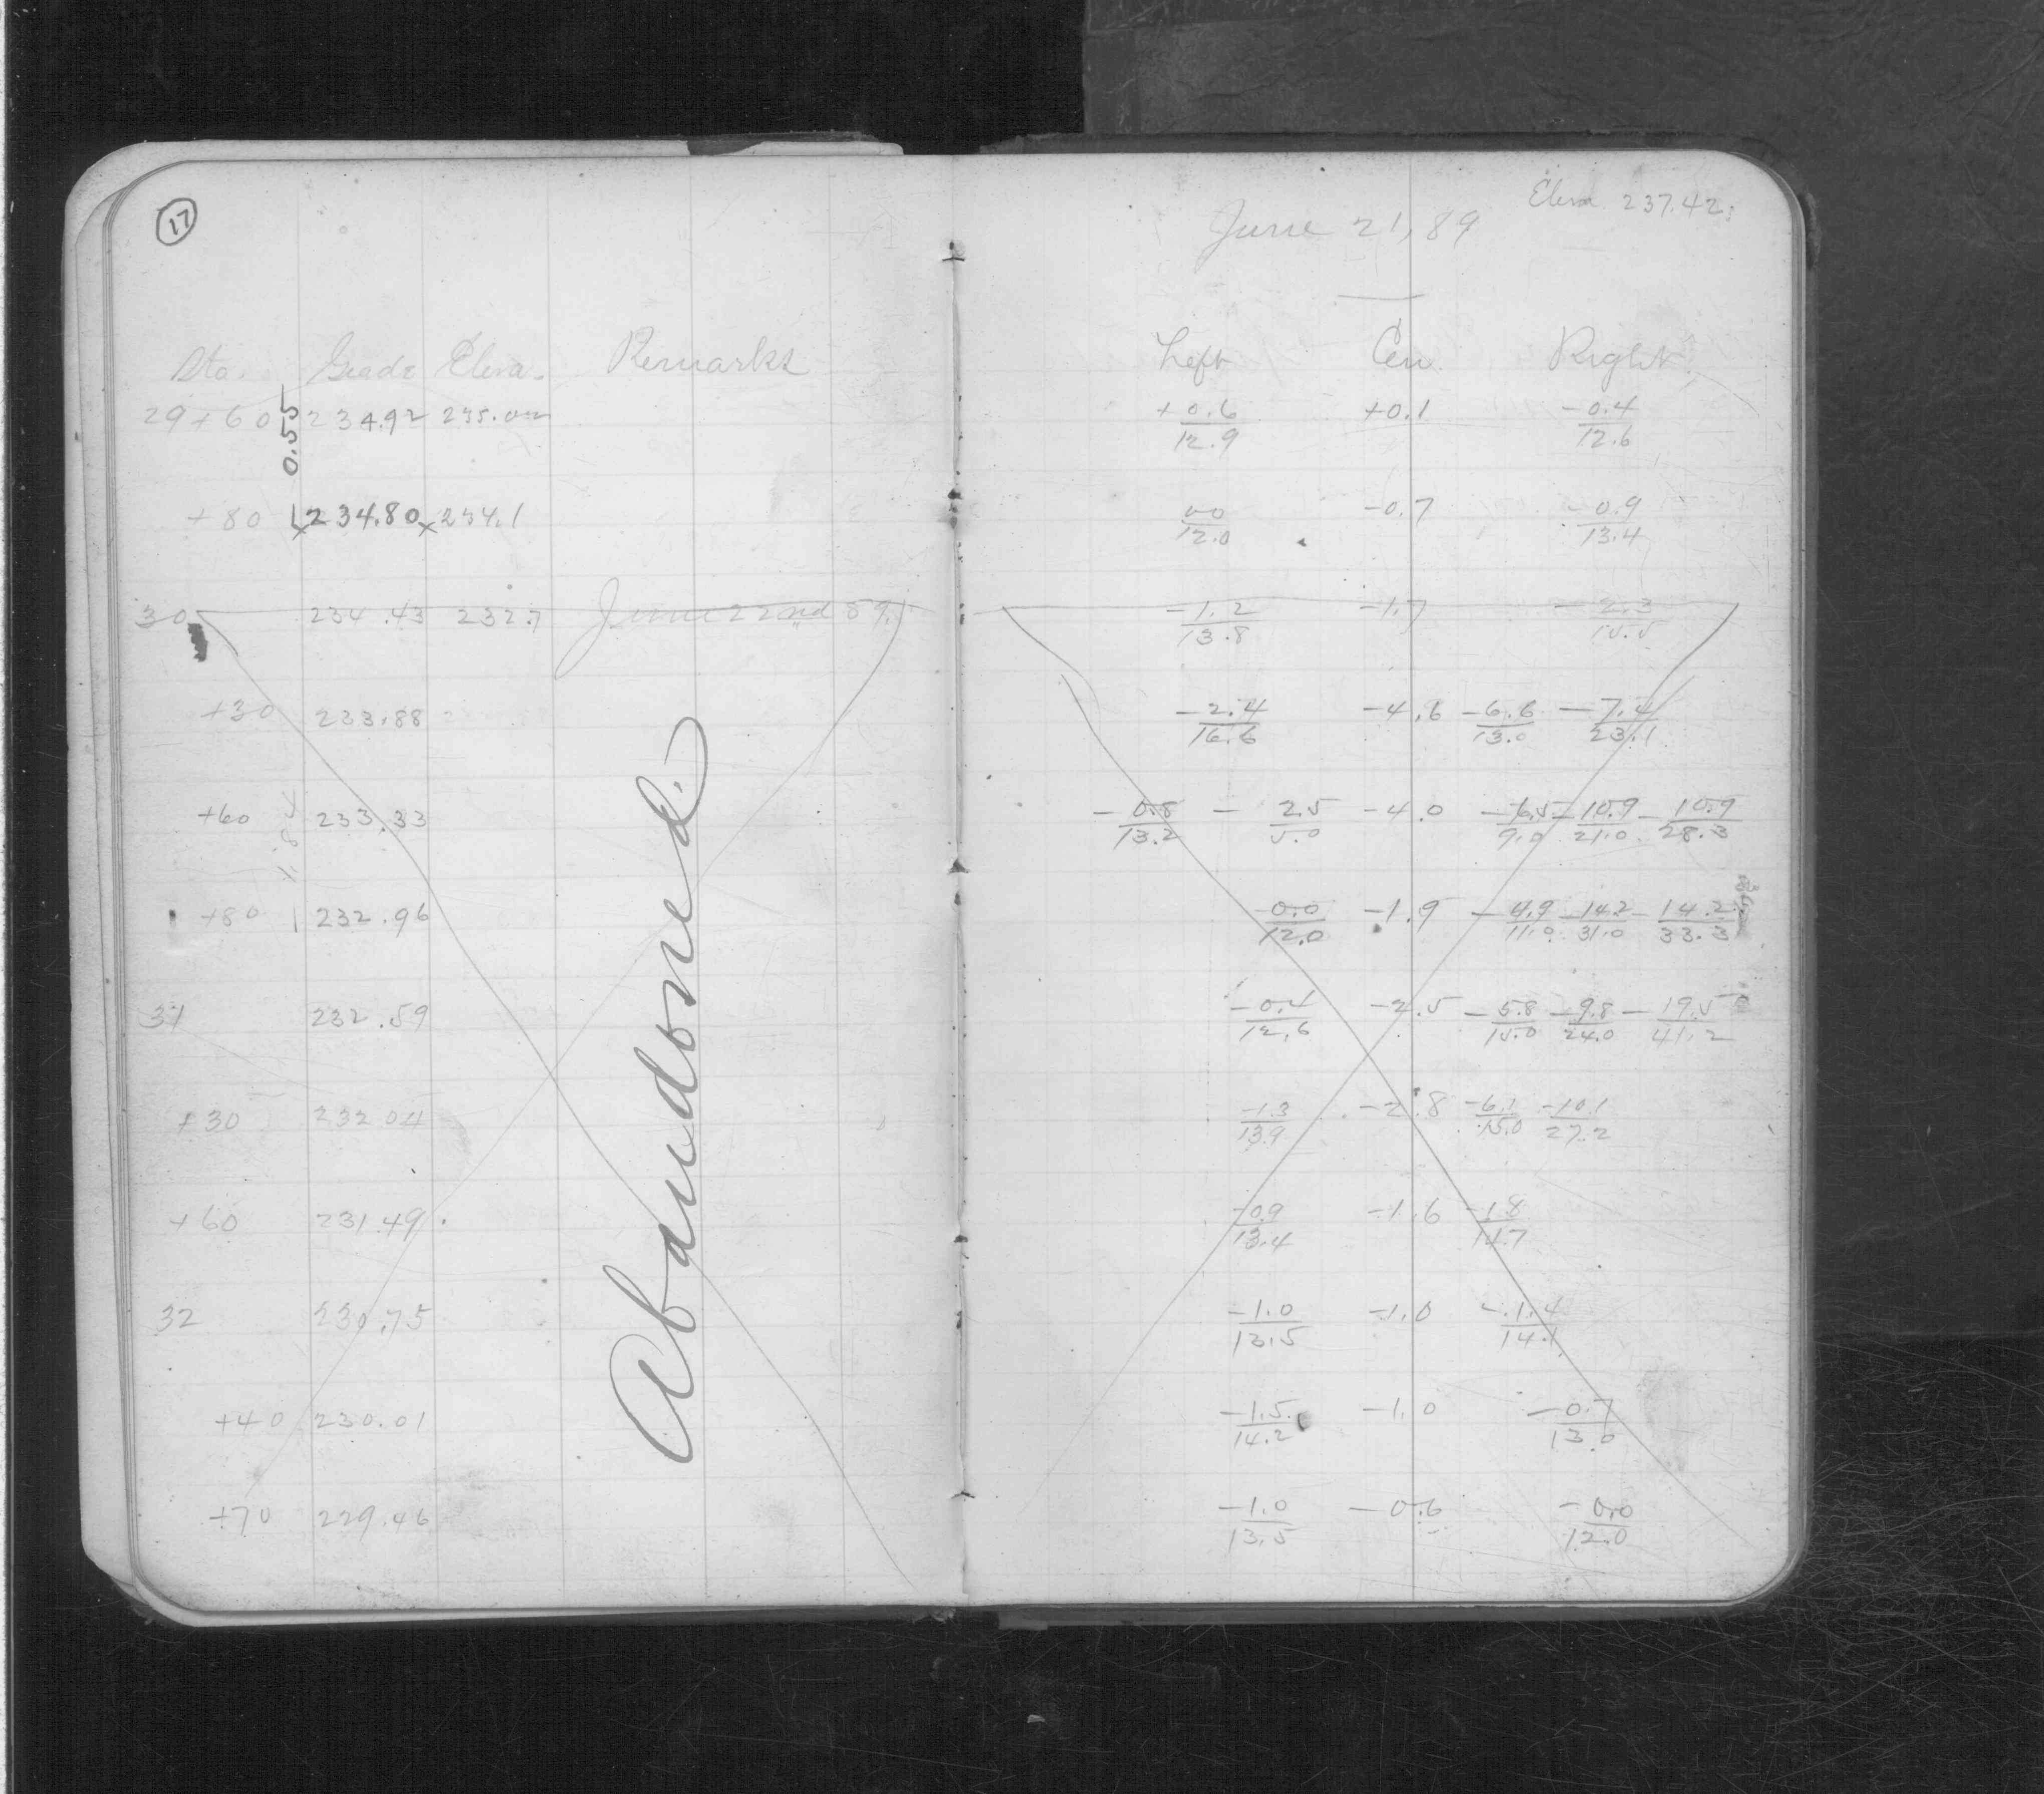 17
Sta. Grade Eleva. Remarks
29+60 234.92 235.02
0.55
+80 234.80 234.1
30 234.43 232.7 June 22nd 89.
+30 233.88
+60 233.33
1.84
+80 232.96
31 232.59
+30 232.04
+60 231.49
32 230.75
+40 230.01
+70 229.46
Abandoned.
Eleva 237.42
June 21, 89
Left Cen. Right
+0.6/12.9 +0.1 -0.4/12.6
0.0/12.0 -0.7 -0.9/13.4
-1.2/13.8 -1.7 -2.3/15.5
-2.4/16.6 -4.6 -6.6/13.0 -7.4/23.1
-0.8/13.2 -2.5/5.0 -4.0 -6.5/9.0 -10.9/21.0 -10.9/28.3
0.0/12.0 -1.9 -4.9/11.0 -14.2/31.0 -14.2/33.3
-0.4/12.6 -2.5 -5.8/15.0 -9.8/24.0 -19.5/41.2
-1.3/13.9 -2.8 -6.1/15.0 -10.1/27.2
-0.9/13.4 -1.6 -1.8/14.7
-1.0/13.5 -1.0 -1.4/14.1
-1.5/14.2 -1.0 -0.7/13.0
-1.0/13.5 -0.6 -0.0/12.0